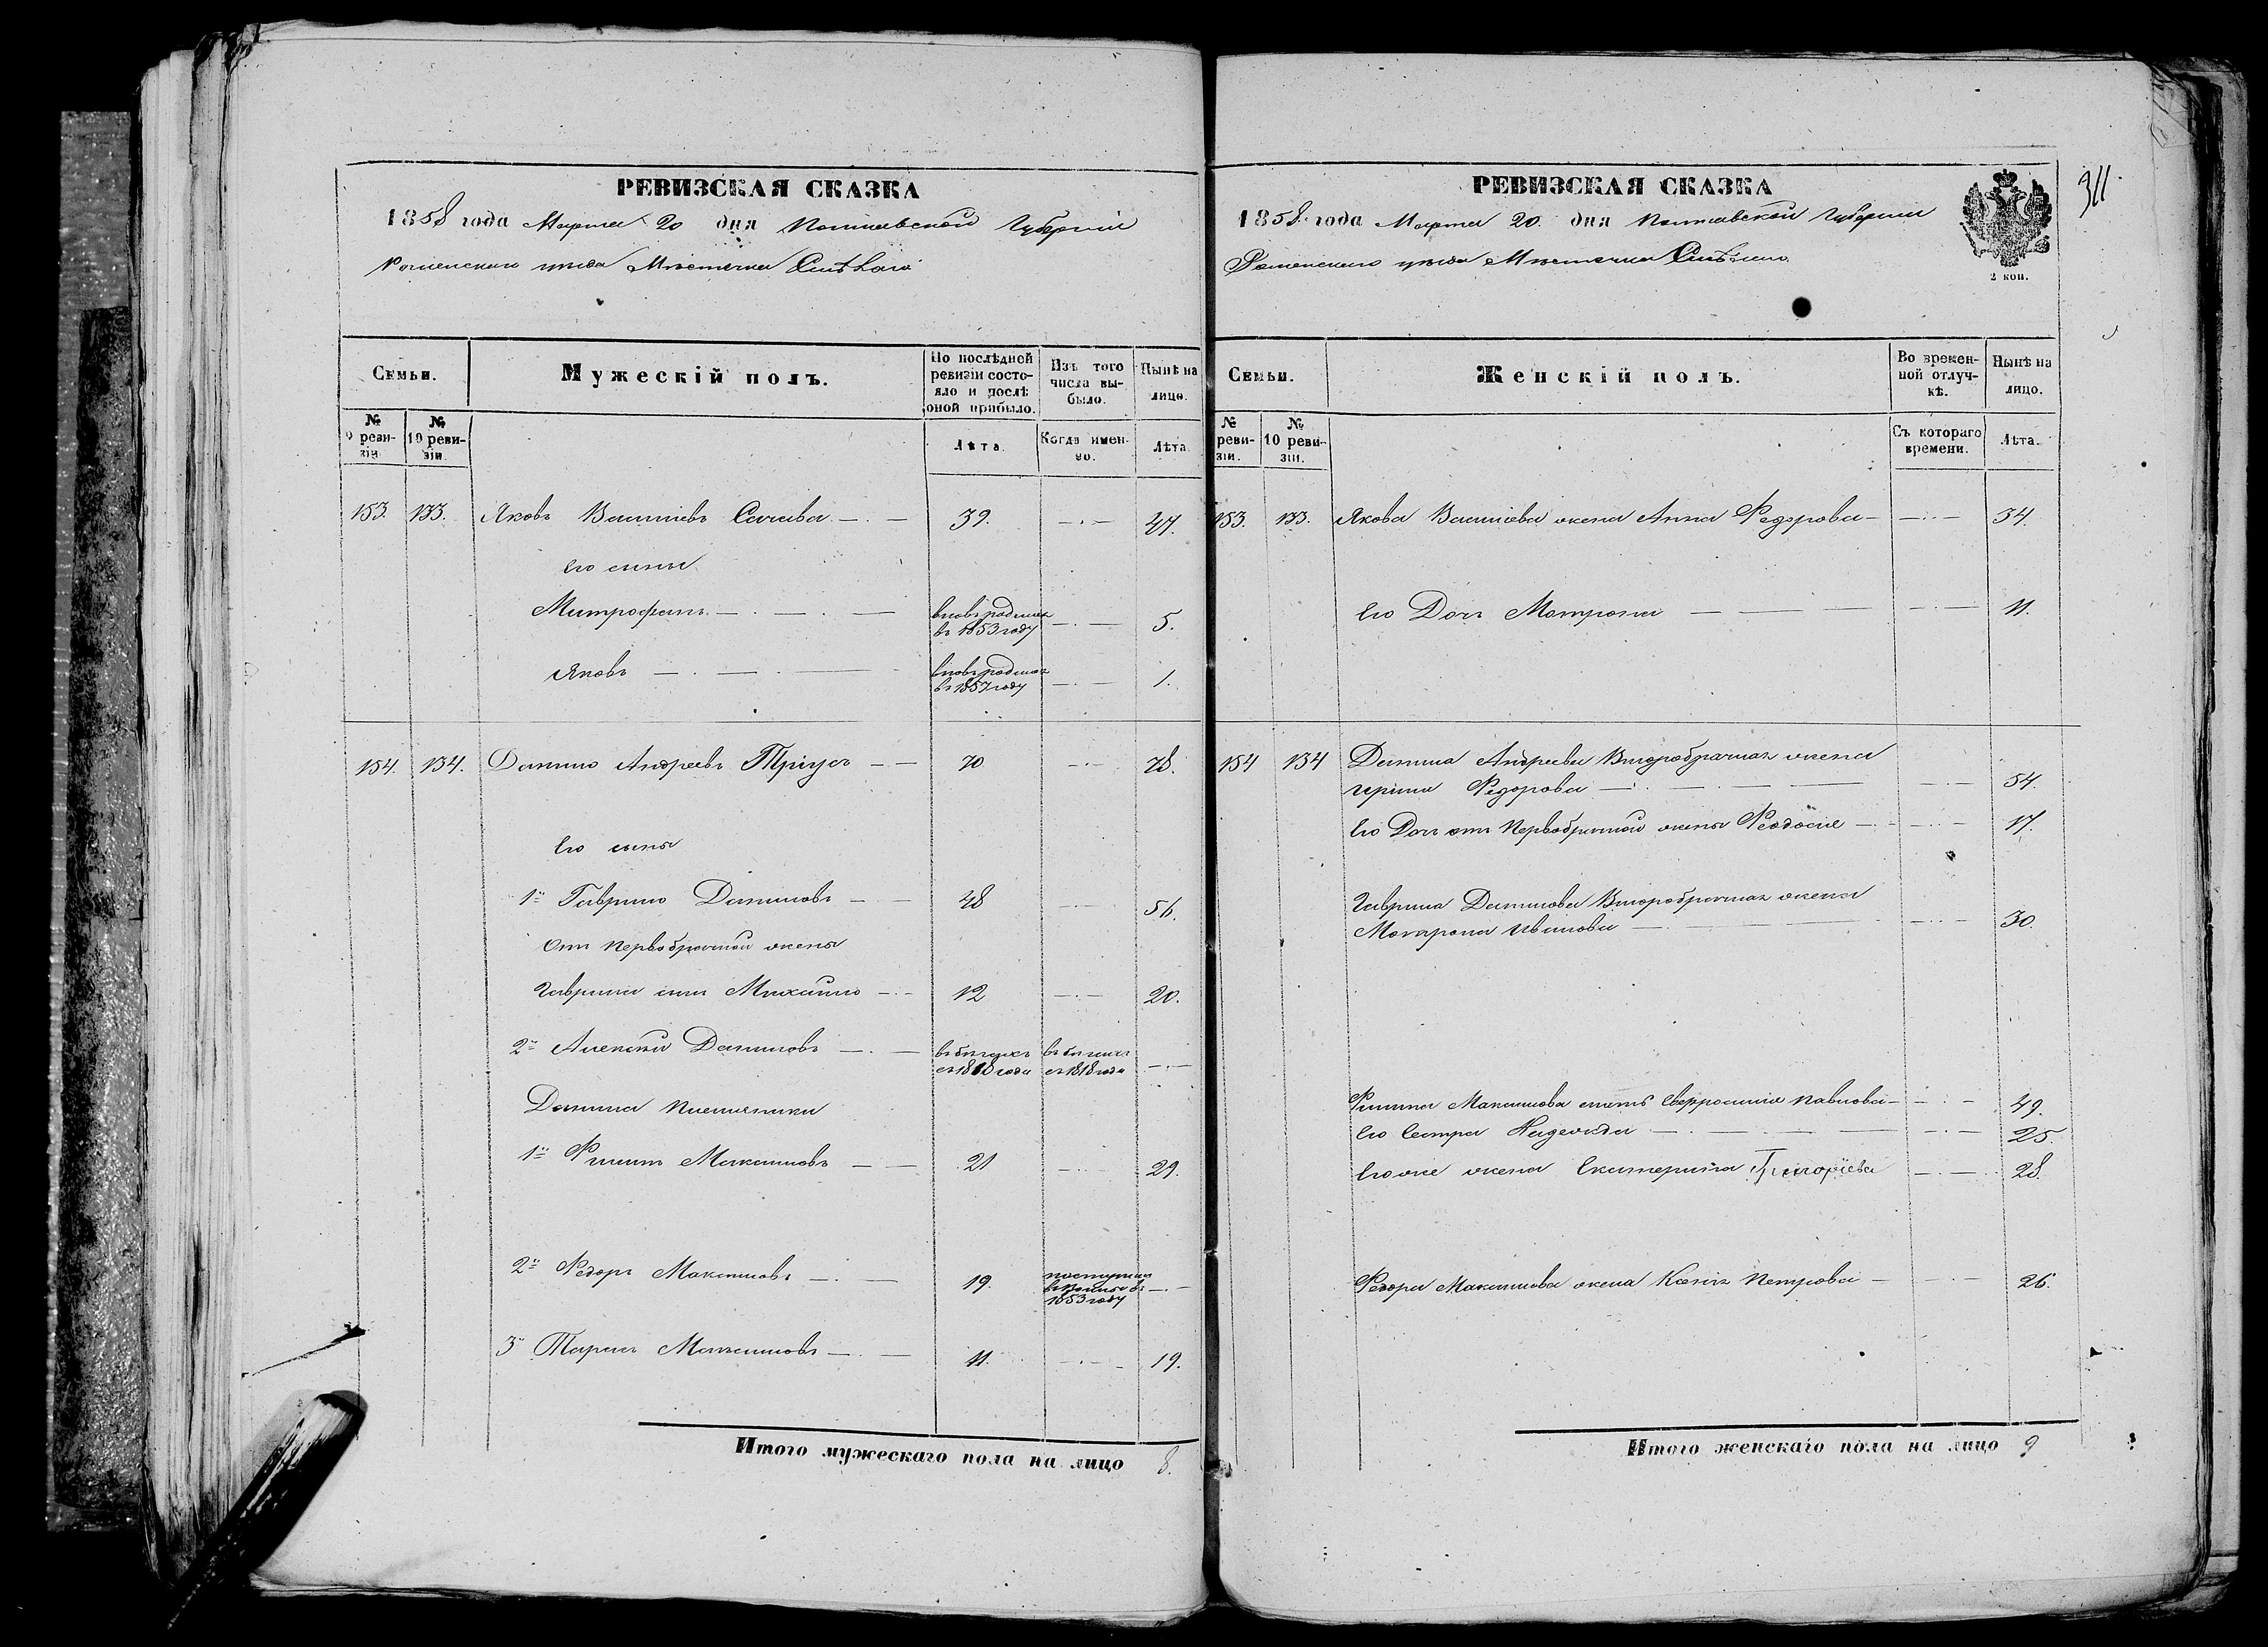 РЕВИЗСКАЯ СКАЗКА
1858 года Марта 20 дня Полтавской Губерніи
Роменскаго уѣзда Мѣстечка Смѣлаго
Семьи.
Мужескій полъ.
По послѣдней ревизіи состояло и послѣ оной прибыло.
Изъ того числа выбыло.
Нынѣ на лицо.
№ 9 ревизіи.
№ 10 ревизіи.
Лѣта.
Когда именно.
Лѣта.
153. 133. Яковъ Васильевъ 39. 47.
Его сыны
Митрофанъ вновь рожден въ 1853 году 5.
Яковъ вновь рожден въ 1857 году 1.
154. 134. Данило Андреевъ Тріусъ 70 78.
Его сыны
1й Гаврило Даниловъ 48 56.
Отъ первобрачной жены
Гаврила сынъ Михайло 12 20.
2й Алексѣй Даниловъ въ бѣгахъ съ 1818 года въ бѣгахъ съ 1818 года
Данила племяники
1й Филипъ Максимовъ 21 29.
2й Федоръ Максимовъ 19. поступил 1853 году
3 Тарасъ Максимовъ 11. 19.
Итого мужескаго пола на лицо 8.
РЕВИЗСКАЯ СКАЗКА
311.
1858 года Марта 20. дня Полтавской Губерніи
Роменскаго уѣзда Мѣстечка Смѣлаго
2 коп.
Семьи.
Женскій полъ.
Во временной отлучкѣ.
Нынѣ на лицо.
№ ревизіи.
№ 10 ревизіи.
Съ котораго времени.
Лѣта.
153. 133. Якова Васильева жена Анна Федорова 34.
Его Дочь Матрона 11.
154 134 Данила Андреева Второбрачная жена
Ирина Федорова 54.
Его Дочь отъ Первобрачной жены Феодосія 17.
Гаврила Данилова Второбрачная жена
Матрона Иванова 30.
Филипа Максимова мать Евфросинія Павлова 49.
Его Сестра Надежда 25.
Его же жена Екатерина Григорієва 28.
Федора Максимова жена Ксенія Петрова 26.
Итого женскаго пола на лицо 9